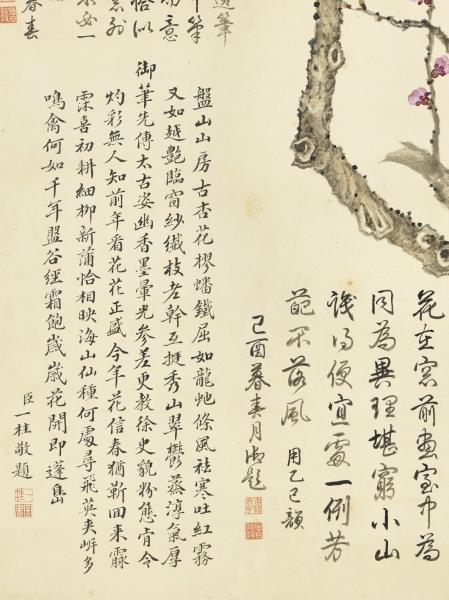 花在窓前畫室中為
同為異理堪窮小山
識得便宜處一例芳
葩不落風 用乙巳韻
己酉暮春月御題
筆
筆
意
恰以
一
春
盤山山房古杏花樛蟠鐵屈如龍虵條風祛寒吐紅霧
又如越艷臨窗紗纖枝老幹互挺秀山翠欝蒸淳氣厚
御筆先傳太古姿幽香墨暈光參差更教徐史貌粉態肯令
灼彩無人知前年看花花正盛今年花信春猶靳回來霢
霂喜初耕細柳新蒲恰相映海山仙種何處尋飛英夾岍多
鳴禽何如千年盤谷經霜飽歲歲花開即蓬島
臣一桂敬題